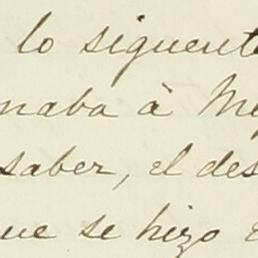 lo siguente
naba à Me
saber, el des
que se hizo